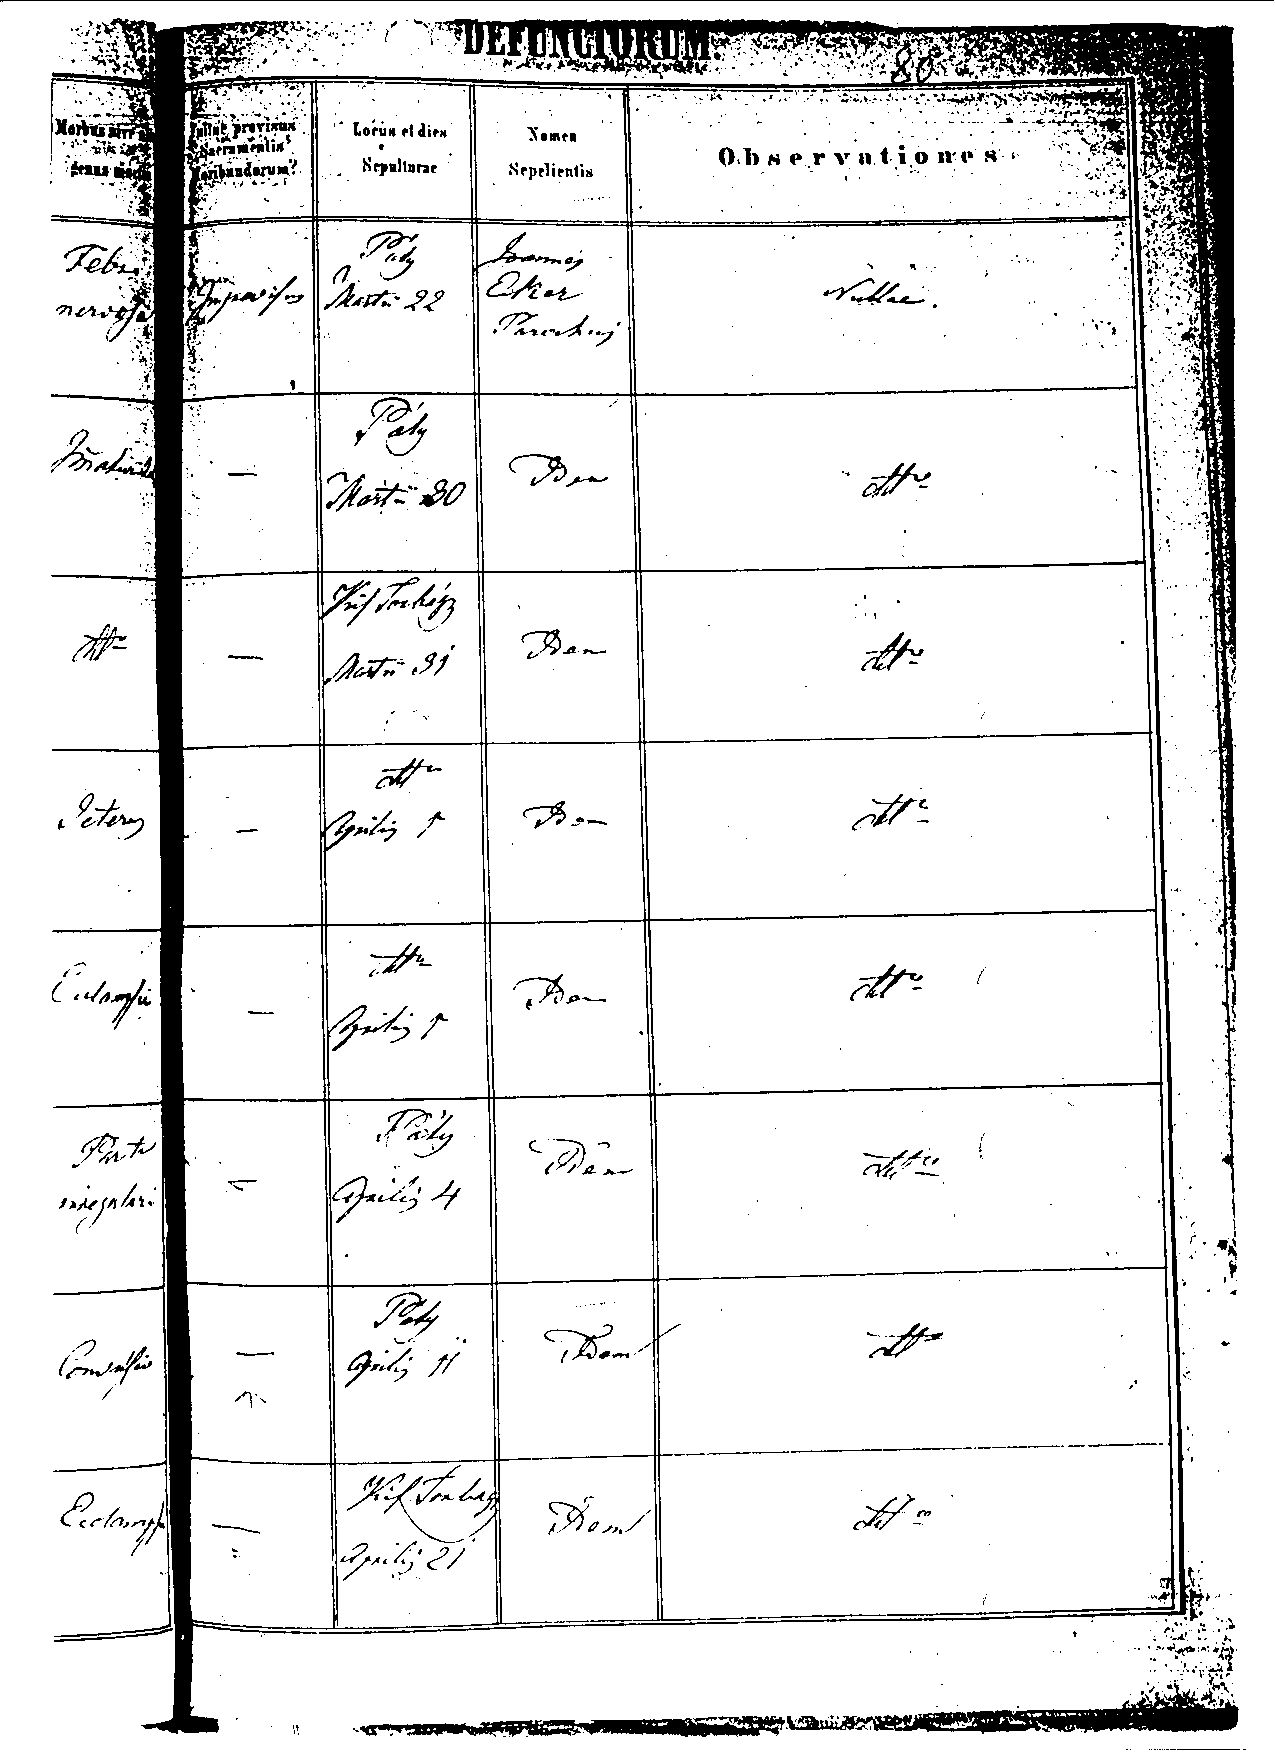 DEFUNCTORUM.
80
Morbus sive
genus mortis
Fuitne provisus
Sacramentis
Moribundorum?
Locus et dies
Sepulturae
Nomen
Sepelientis
Observationes
Febri
nervosa
Improvisus
Páty
Martii 22
Joannes
Eker
Parochus
Nullae.
—
Páty
Martii 30
Idem
dtto
dtto
—
Kis Torbágy
Martii 31
Idem
dtto
Icterus
—
dtto
Aprilis 1
Idem
dtto
Eclampsia
—
dtto
Aprilis 1
Idem
dtto
Partu
irregulari
—
Páty
Aprilis 4
Idem
dtto
Convulsio
—
Páty
Aprilis 11
Idem
dtto
Eclamps
—
Kis Torbágy
Aprilis 21
Idem
dtto